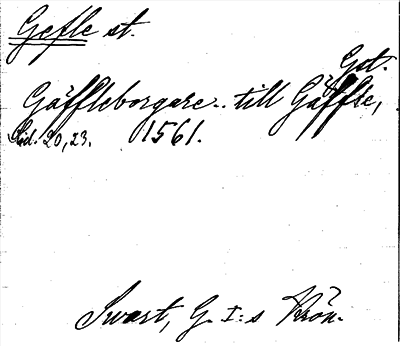 Gefle st.
Gst.
Gäffleborgare.. till Gäffle,
Sid. 20, 23. 1561.
Swart, G. I:s Krön.